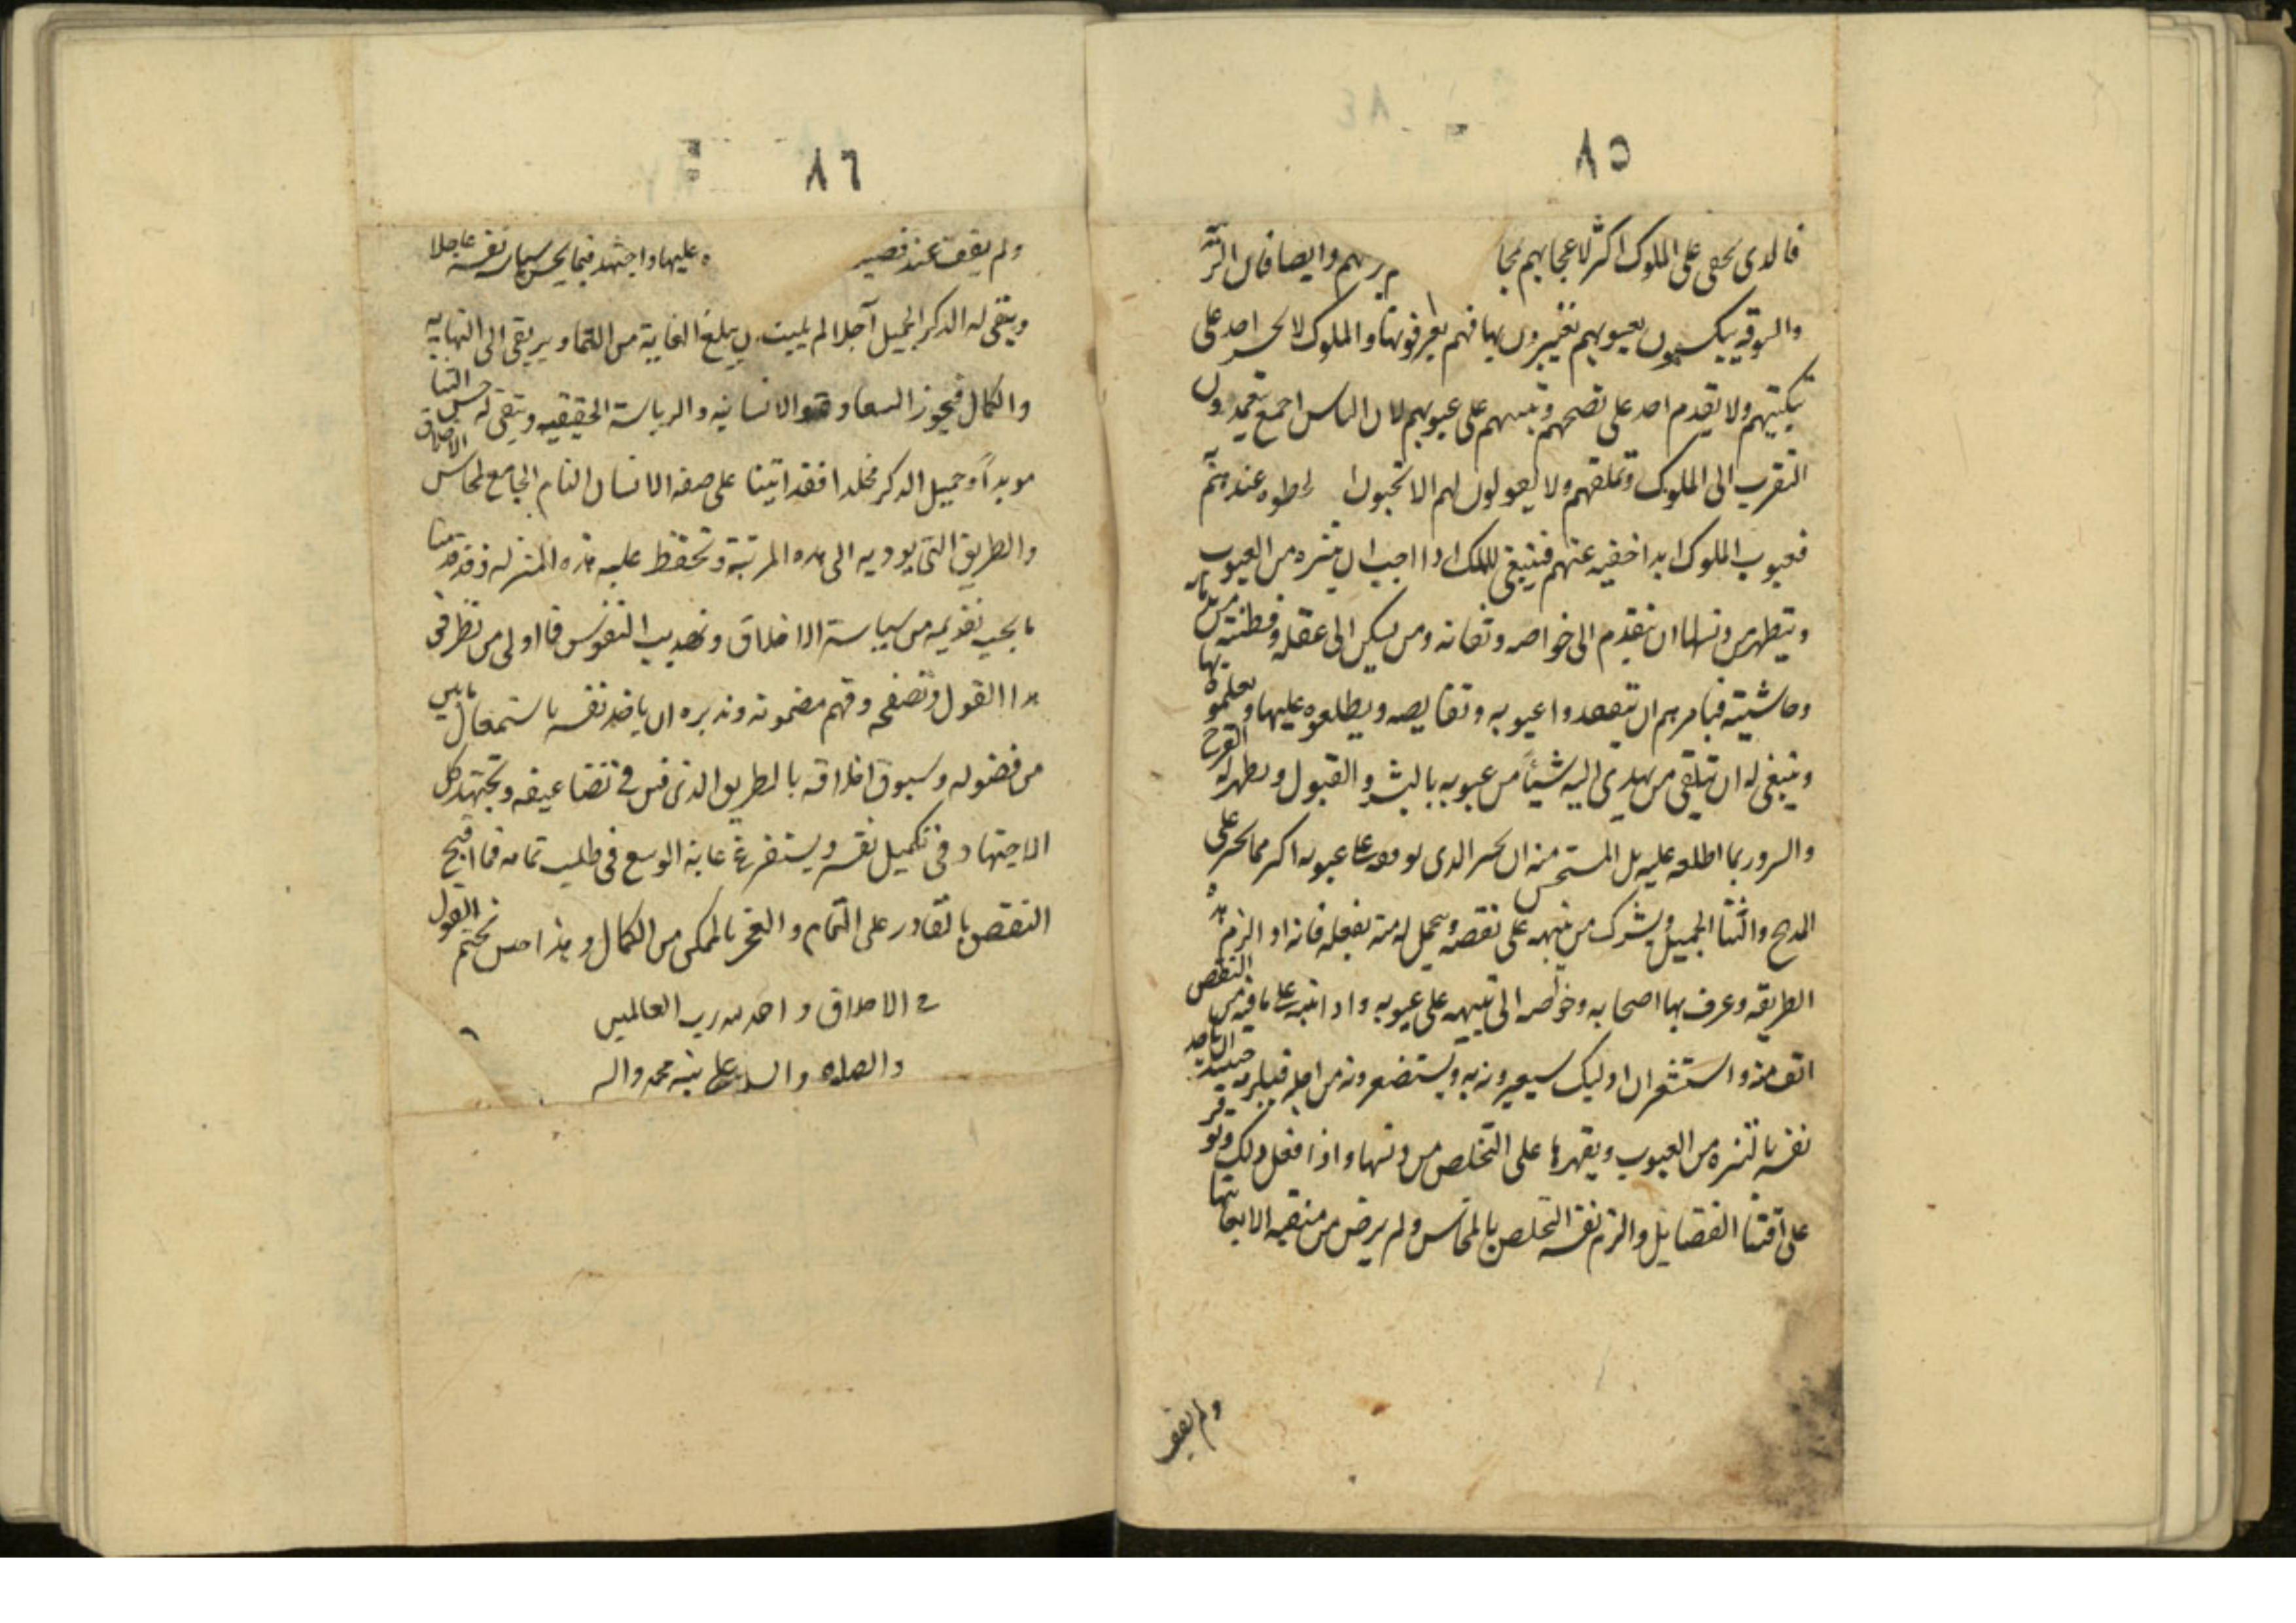 ٨٥
فالذى يخفى على الملوك اكثر لاعجابهم بمحا رهم وايضا فان الرعيّة
والسوقة يبكتون بعيوبهم ويعيرون بها فهم يعرفونها والملوك لا يجسر احد على
تبكيتهم ولا يقدم احد على نصحهم وتنبيههم على عيوبهم لان الناس اجمع يتعمدون
التقرب الى الملوك وتملقهم ولا يقولون لهم الا تحبون لحظوه عندهم
فعيوب الملوك ابدا خفيه عنهم فينبغى للملك اذا احب ان يتنزه من العيوب
ويتطهر من دنسها ان يتقدم الى خواصه وثقاته ومن يسكن الى عقله وفطنته من خدمه
وحاشيته فيامرهم ان يتفقدوا عيوبه ونقايصه ويطلعوه عليها ويعلموه بها
وينبغى له ان يتلقى من يهدى اليه شيئاً من عيوبه بالبشر والقبول ويظهر له الفرح
والسرور بما اطلعه عليه بل المستحسن منه ان يجيز الذى يوقفه على عيوبه اكثر مما يجيز على
المدح والثنا الجميل ويشكر من ينبهه على نقصه ويتحمل له منة بفعله فانه اذا لزم هذه
الطريقه وعرف بها اصحابه وخواصه الى تنبيهه على عيوبه واذا نبه على ما فيه من النقص
انف منه واستشعر ان اوليك سيعيرونه به ويستضعرونه من اجله فيلزمه حينيذ ان ياخذ
نفسه بالتنزه من العيوب ويقهرها على التخلص من دنسها واذا فعل ذلك وتوفر
على اقتنا الفضايل والزم نفسه التخلص بالمحاسن ولم يرض من منقبه الا بغايتها
ولم يقف
٨٦
ولم يقف عند فضيـ ه عليها واجتهد فيما يحسن سياسة نفسه عاجلا
ويبقى له الذكر الجميل آجلا لم يلبث ان يبلغ الغاية من التمام ويرتقى الى النهايه
والكمال فيحوز السعادة الانسانيه والرياسة الحقيقيه ويبقى له حسن الثنا
موبداً وجميل الذكر مخلدا فقد اتينا على صفه الانسان التام الجامع لمحاسن الاخلاق
والطريق التى يوديه الى هذه المرتبة وتحفظ عليه هذه المنزله وقدمنا
ما يجب تقديمه من سياسة الاخلاق وتهذيب النفوس فما اولى من نظر فى
هذا القول وتصفحه وفهم مضمونه وتدبره ان ياخذ نفسه باستعمال ما بين
من فضوله وسيوق اخلاقه بالطريق الذى فى تضاعيفه ويجتهد كل
الاجتهاد فى تكميل نفسه ويستفرغ غاية الوسع فى طلب تمامه فما اقبح
النقص بالقادر على التمام والعجز بالممكن من الكمال وهذا حين نختم القول
فى الاخلاق والحمد لله رب العالمين
والصلاه والسلام على نبيه محمد واله